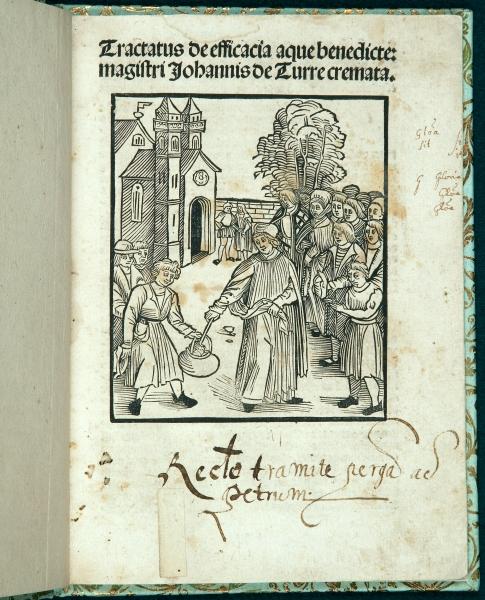 Tractatus de efficacia aque benedicte:
magistri Johannis de Turre cremata.
Gloria
Recto tramite perga ad
petrum.